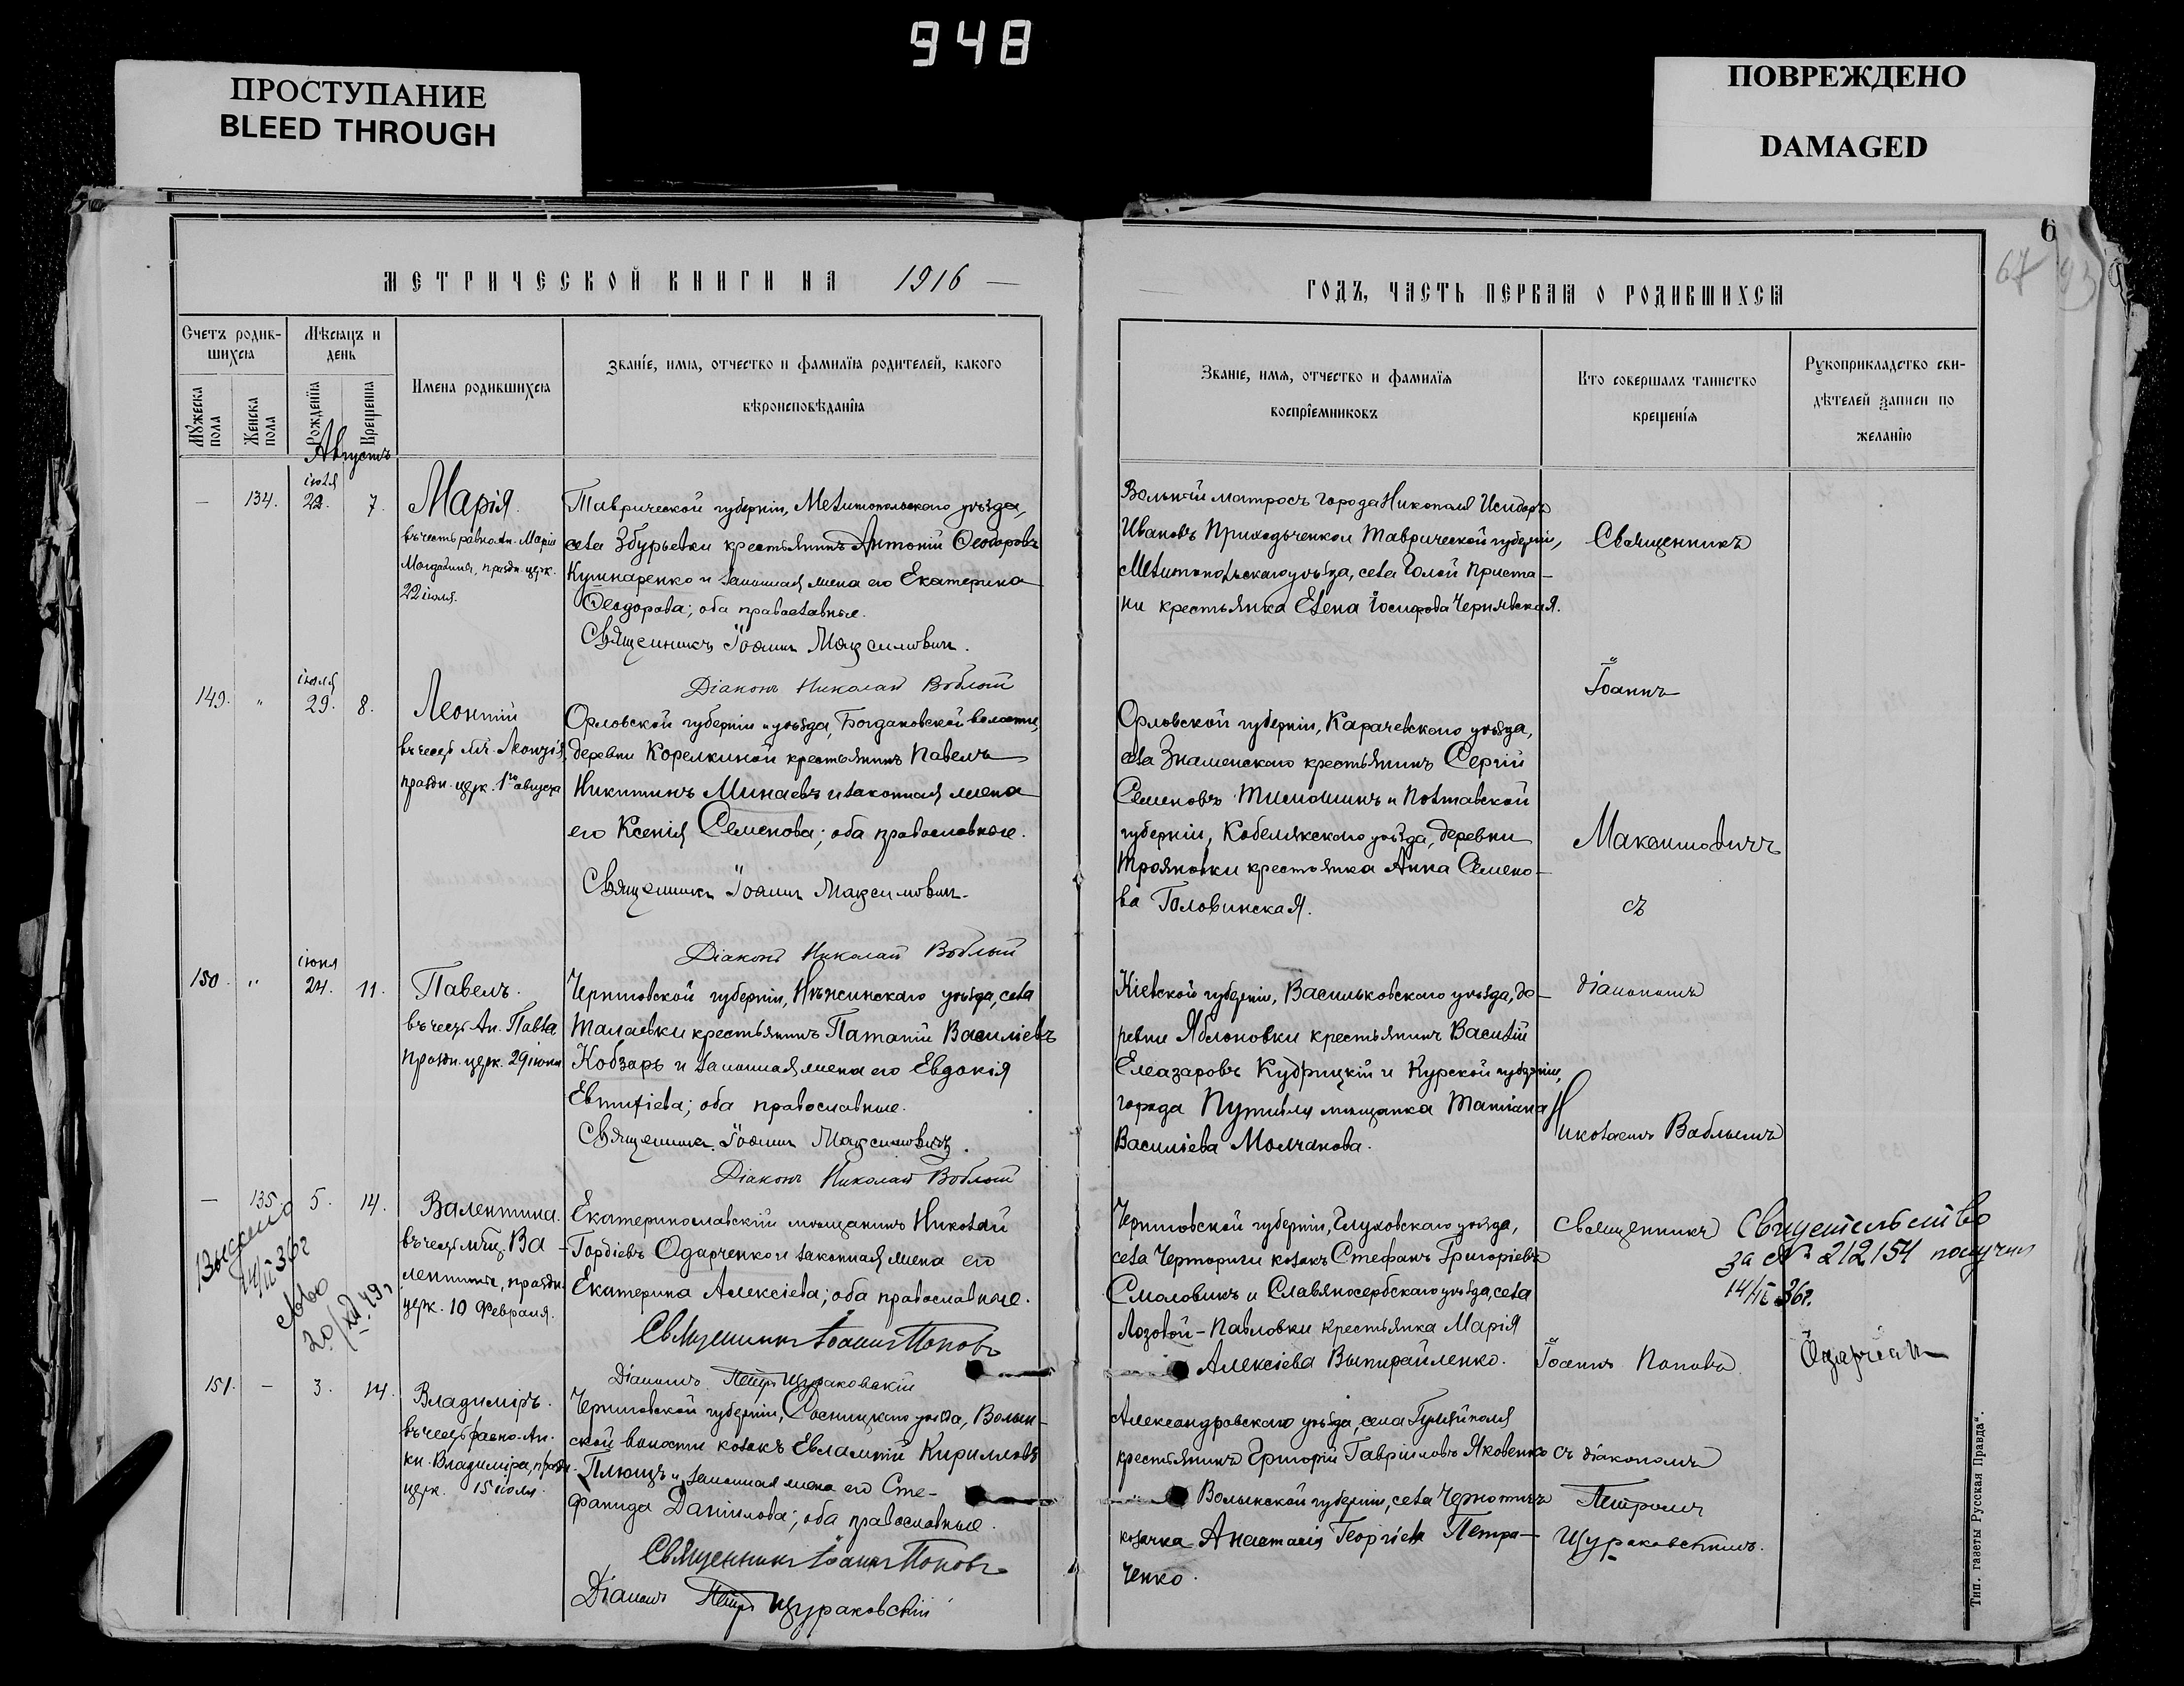 948
ПРОСТУПАНИЕ
BLEED THROUGH
ПОВРЕЖДЕНО
DAMAGED
МЕТРИЧЕСКОЙ КНИГИ НА 1916 —
Счетъ родив-
шихсѧ
Мѣсѧцъ и
день
Имена родившихсѧ
Званїе, имѧ, отчество и фамилїѧ родителей, какого
вѣроисповѣданїѧ
Мужеска
пола
Женска
пола
Рожденїѧ
Крещенїѧ
Августъ
— 134. іюля 22. 7.
Марія.
въ честь равно-Ап. Маріи
Магдалины, праздн. церк.
22 іюля.
Таврической губерніи, Мелитопольскаго уѣзда,
села Збурьевки крестьянинъ Антоній Ѳеодоровъ
Кушнаренко и законная жена его Екатерина
Ѳеодорова; оба православные.
Священникъ Іоаннъ Максимовичъ.
Діаконъ Николай Воблый
149. " іюля 29. 8.
Леонтій
въ честь мч. Леонтія,
праздн. церк. 1го августа
Орловской губерніи и уѣзда, Богдановской волости,
деревни Корелкиной крестьянинъ Павелъ
Никитинъ Минаевъ и законная жена
его Ксенія Семенова; оба православные.
Священникъ Іоаннъ Максимович.
Діаконъ Николай Воблый
150. " іюня 24. 11.
Павелъ.
въ честь Ап. Павла
праздн. церк. 29 іюня
Черниговской губерніи, Нѣжинскаго уѣзда, села
Талаевки крестьянинъ Патапій Василіевъ
Кобзарь и законная жена его Евдокія
Евтихіева; оба православные.
Священникъ Іоаннъ Максимовичъ.
Діаконъ Николай Воблый
— 135. 5. 14.
Валентина.
въ честь мцы. Ва-
лентины, праздн.
церк. 10 Февраля.
14/II 36г
20/XII 49г
Екатеринославскій мѣщанинъ Николай
Гордіевъ Одарченко и законная жена его
Екатерина Алексіева; оба православные.
Священникъ Іоаннъ Поповъ
Діаконъ Петръ Щураковскій
151. — 3. 14.
Владиміръ.
въ честь равно-Ап.
кн. Владиміра, праздн.
церк. 15 іюля.
Черниговской губерніи, Сосницкаго уѣзда, Волын-
ской волости козакъ Евлампій Кирилловъ
Плющъ и законная жена его Сте-
фанида Даніилова; оба православные.
Священникъ Іоаннъ Поповъ
Діаконъ Петръ Щураковскій
6
67
ГОДЪ, ЧАСТЬ ПЕРВАѦ О РОДИВШИХСѦ
Званїе, имѧ, отчество и фамилїѧ
воспрїемниковъ
Кто совершалъ таинство
крещенїѧ
Рукоприкладство сви-
дѣтелей записи по
желанїю
Вольный матросъ города Никополя Исидоръ
Ивановъ Приходьченко и Таврической губерніи,
Мелитопольскаго уѣзда, села Голой Приста-
ни крестьянка Елена Іосифова Чернявская.
Священникъ
Іоаннъ
Орловской губерніи, Карачевскаго уѣзда,
села Знаменскаго крестьянинъ Сергій
Семеновъ Тимошинъ и Полтавской
губерніи, Кобелякскаго уѣзда, деревни
Трояновки крестьянка Анна Семено-
ва Головинская.
Максимовичъ
съ
Кіевской губерніи, Васильковскаго уѣзда, де-
ревни Яблоновки крестьянинъ Василій
Елеазаровъ Кудрицкій и Курской губерніи,
города Путивля мѣщанка Татіана
Василіева Молчанова.
діакономъ
Николаемъ Воблымъ
Черниговской губерніи, Глуховскаго уѣзда,
села Черторіги козакъ Стефанъ Григоріевъ
Смоловикъ и Славяносербскаго уѣзда, села
Лозовой-Павловки крестьянка Марія
Алексіева Выпирайленко.
Священникъ
Іоаннъ Поповъ
Свидетельство
за № 212154 получил
14/II 36г.
Александровскаго уѣзда, села Гуляйполя
крестьянинъ Григорій Гавріиловъ Яковенко
Волынской губерніи, села
козачка Анастасія Георгіева Петра-
ченко.
съ діакономъ
Петромъ
Щураковскимъ.
Тип. газеты Русская Правда".